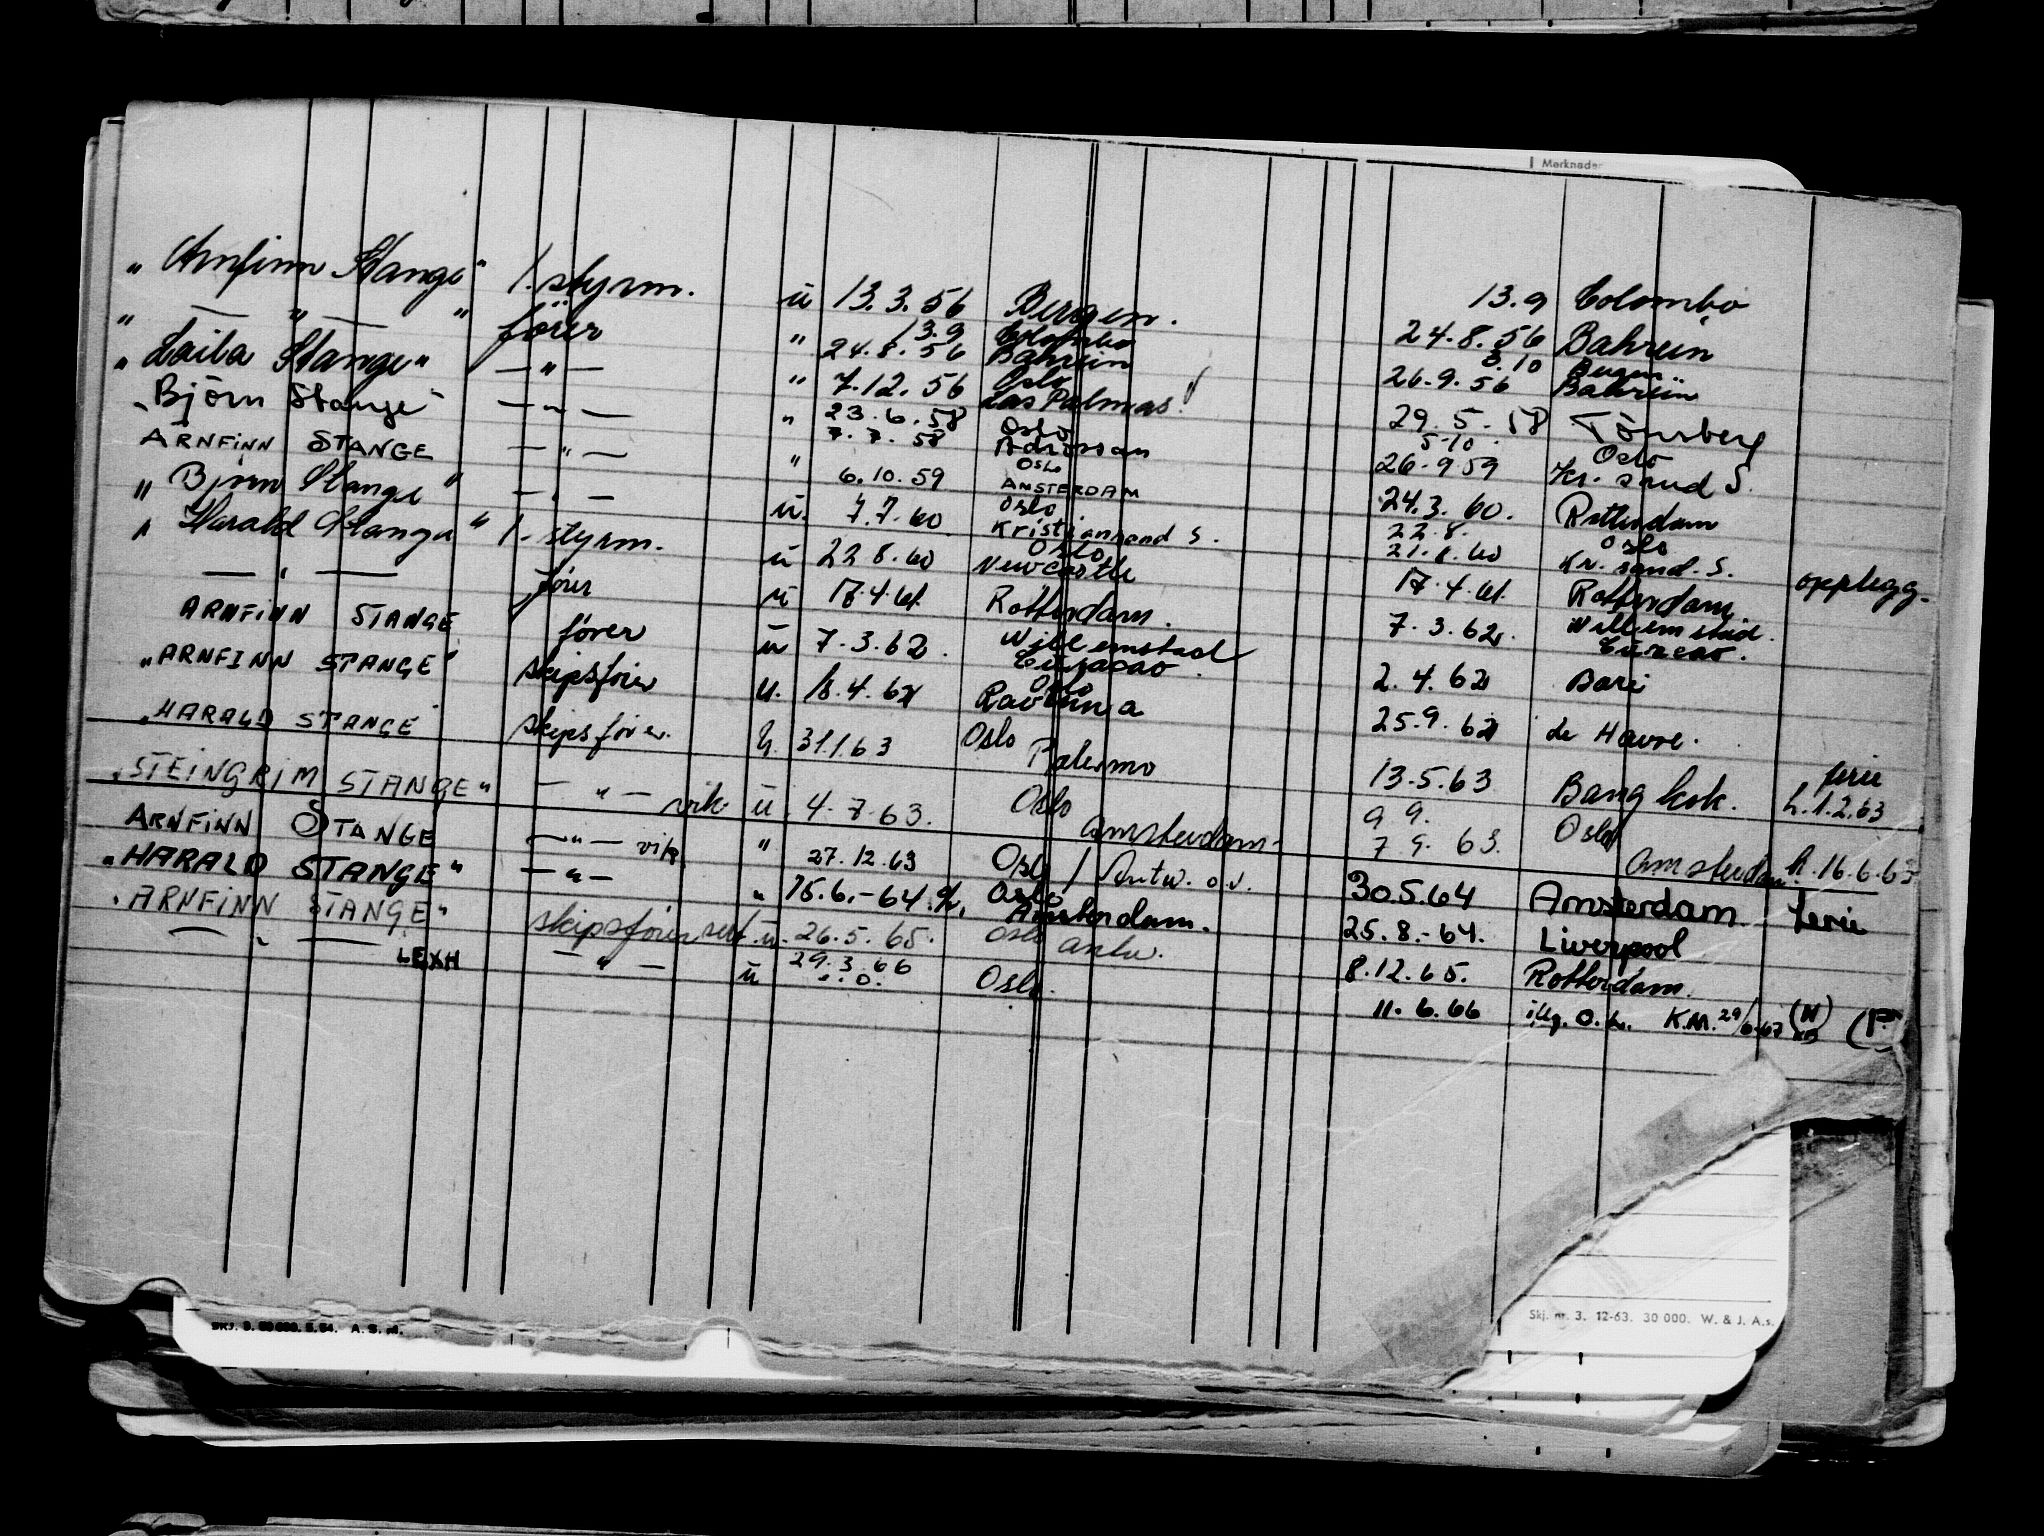 Merknader
"Arnfinn Stange" 1. styrm. u 13.3.56 Bergen. 13.9 Colombo
" — " — " fører " 13.9 24.8.56 Colombo Bahrein 24.8.56 Bahrein
" Laila Stange" — " — " 7.12.56 Oslo Las Palmas. 3.10 26.9.56 Bergen Bahrein
"Björn Stange" — " — " 23.6.58 7.7.58 Oslo 29.5.58 Tönsberg
ARNFINN STANGE — " — " 6.10.59 Oslo AMSTERDAM 5-10 26-9 59 Oslo Kr. sand S.
" Bjørn Stange" — " — u. 7.7.60 Oslo Kristiansand S. 24.3.60. Rotterdam
" Harald Stange" 1. styrm. u 22 8.60 Oslo Newcastle 22.8. 21.8.60 Oslo Kr. sand. S. opplegg.
— " — fører u 17.4.61. Rotterdam. 17.4.61. Rotterdam
ARNFINN STANGE fører u 7.3.62. Willemstad Curacao. 7.3.62. Willemstad. Curacao.
"ARNFINN STANGE" skipsfører u. 18.4.62 Oslo Ravenna 2.4.62 Bari
"HARALD STANGE" skipsfører. h. 31.1.63 Oslo Palermo 25.9.62 le Havre.
"STEINGRIM STANGE" — " — vik u. 4.7.63. Oslo Amsterdam. 13.5.63 Bangkok. ferie h.1.2.63
ARNFINN STANGE — " — vik " 27.12.63 Oslo / Antw. o.v. 9 9. 7 9. 63. Oslo Amsterdam. h. 16.6.63
"HARALD STANGE" — " — " 15.6.-64. Oslo Amsterdam. 30.5.64 Amsterdam ferie
"ARNFINN STANGE" skipsfører u. 26.5.65. Oslo Antw. 25.8.-64. Liverpool
— " — LEXH — " — u 29.3.66 Oslo. 8.12.65. Rotterdam.
11.6.66 K.M. 29/6-67 (P.
Skj. nr. 3. 12-63. 30 000. W. & J. A.s.